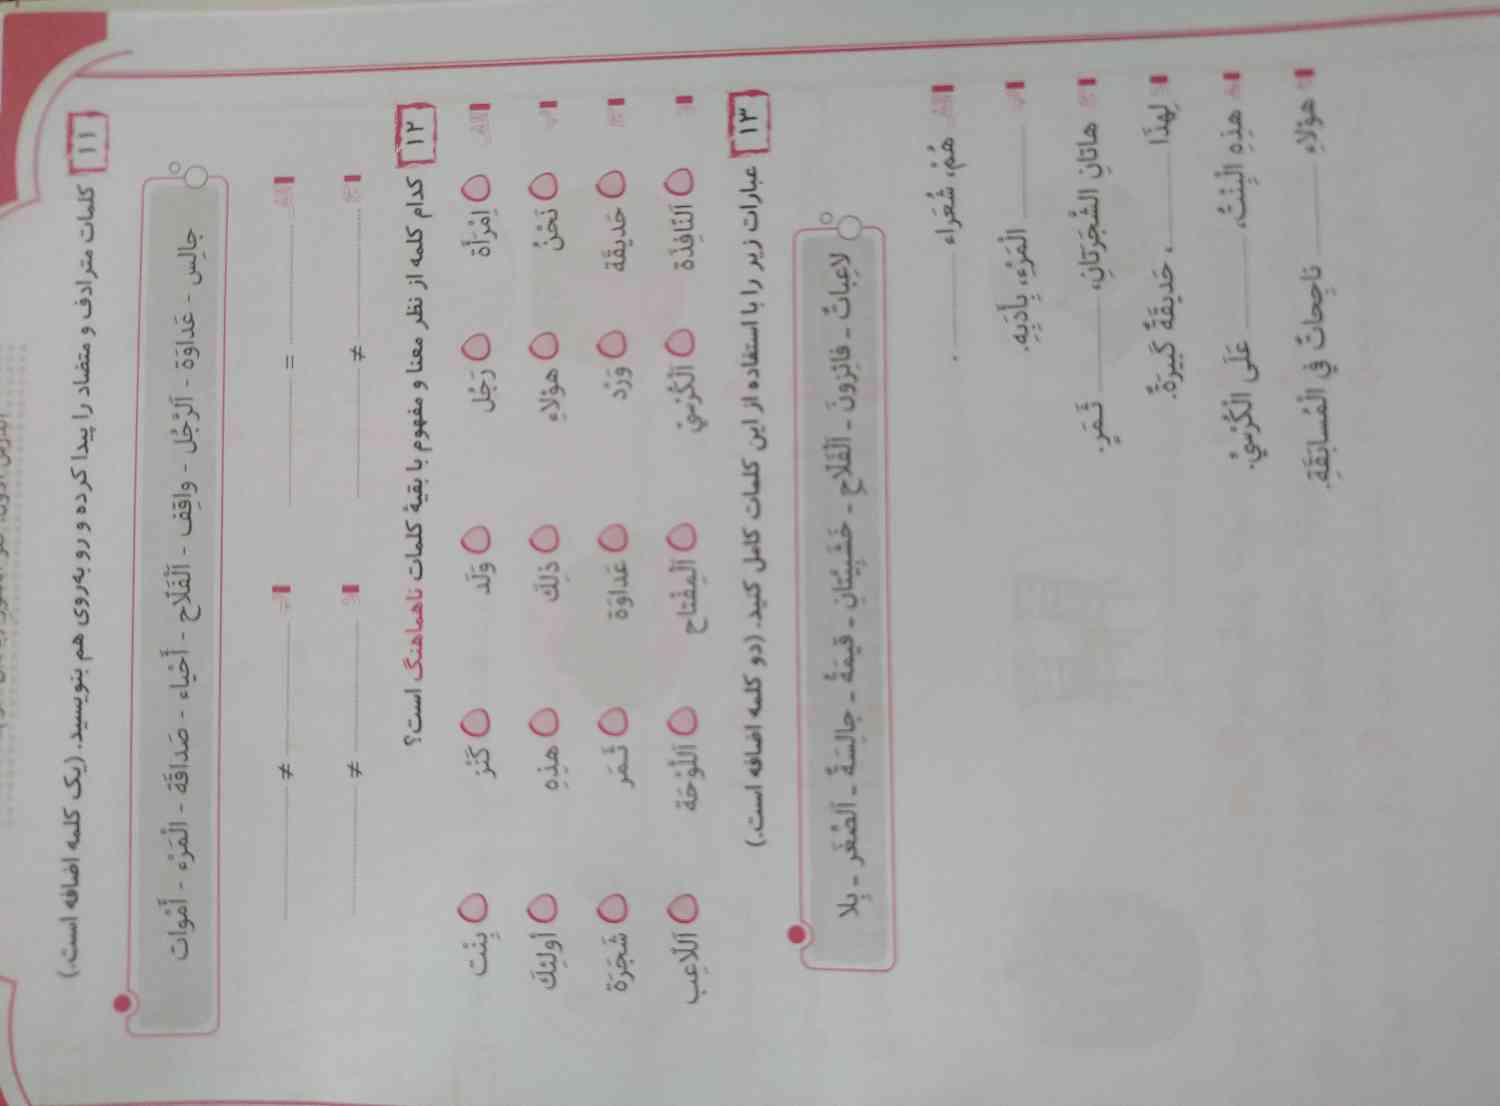 ۱۱ کلمات مترادف و متضاد را پیدا کرده و رو به‌روی هم بنویسید. (یک کلمه اضافه است.)
جالِس - عَداوَة - اَلرَّجُل - واقِف - اَلْفَلّاح - أَحْیاء - صَداقَة - الْمَرْء - أَمْوات
الف = ب ≠
ج ≠ د ≠
۱۲ کدام کلمه از نظر معنا و مفهوم با بقیهٔ کلمات ناهماهنگ است؟
الف اِمْرَأَة رَجُل وَلَد کَنْز بِنْت
ب نَحْنُ هٰؤُلاءِ ذٰلِكَ هٰذِهِ أُولٰئِكَ
ج حَدیقَة وَرْد عَداوَة ثَمَر شَجَرَة
د اَلنّافِذَة اَلْکُرْسيّ اَلْمِفْتاح اَللَّوْحَة اَللّاعِب
۱۳ عبارات زیر را با استفاده از این کلمات کامل کنید. (دو کلمه اضافه است.)
لاعِباتٌ - فائِزونَ - اَلْفَلّاحِ - خَشَبیَّتانِ - قیمَةُ - جالِسَةٌ - اَلصِّغَر - بِلا
الف هُمْ، شُعَراء .
ب الْمَرْءِ، بِأَدَبِهِ.
ج هاتانِ الشَّجَرَتانِ، ثَمَرٍ.
د لِهٰذَا ، حَدیقَةٌ کَبیرَةٌ.
هٰذِهِ الْبِنْتُ، عَلَی الْکُرْسيِّ.
هٰؤُلاءِ ناجِحاتٌ فِي الْمُسابَقَةِ.